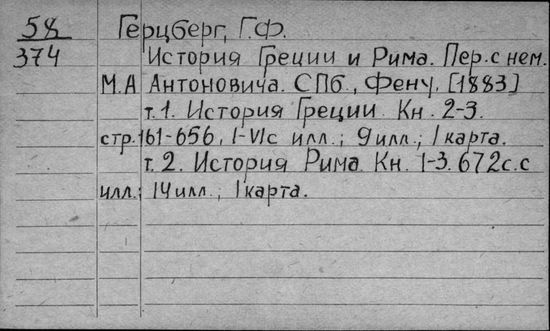 58 Герцберг, Г.Ф.
374 История Греции и Рима. Пер. с нем.
М.А Антоновича. СПб., Фену, [1883]
т.1. История Греции. Кн. 2-3.
стр. 161-656, I-VIс илл.; 9 илл.; 1 карта.
т. 2. История Рима. Кн. 1-3. 672с. с
илл.; 14 илл.; 1 карта.